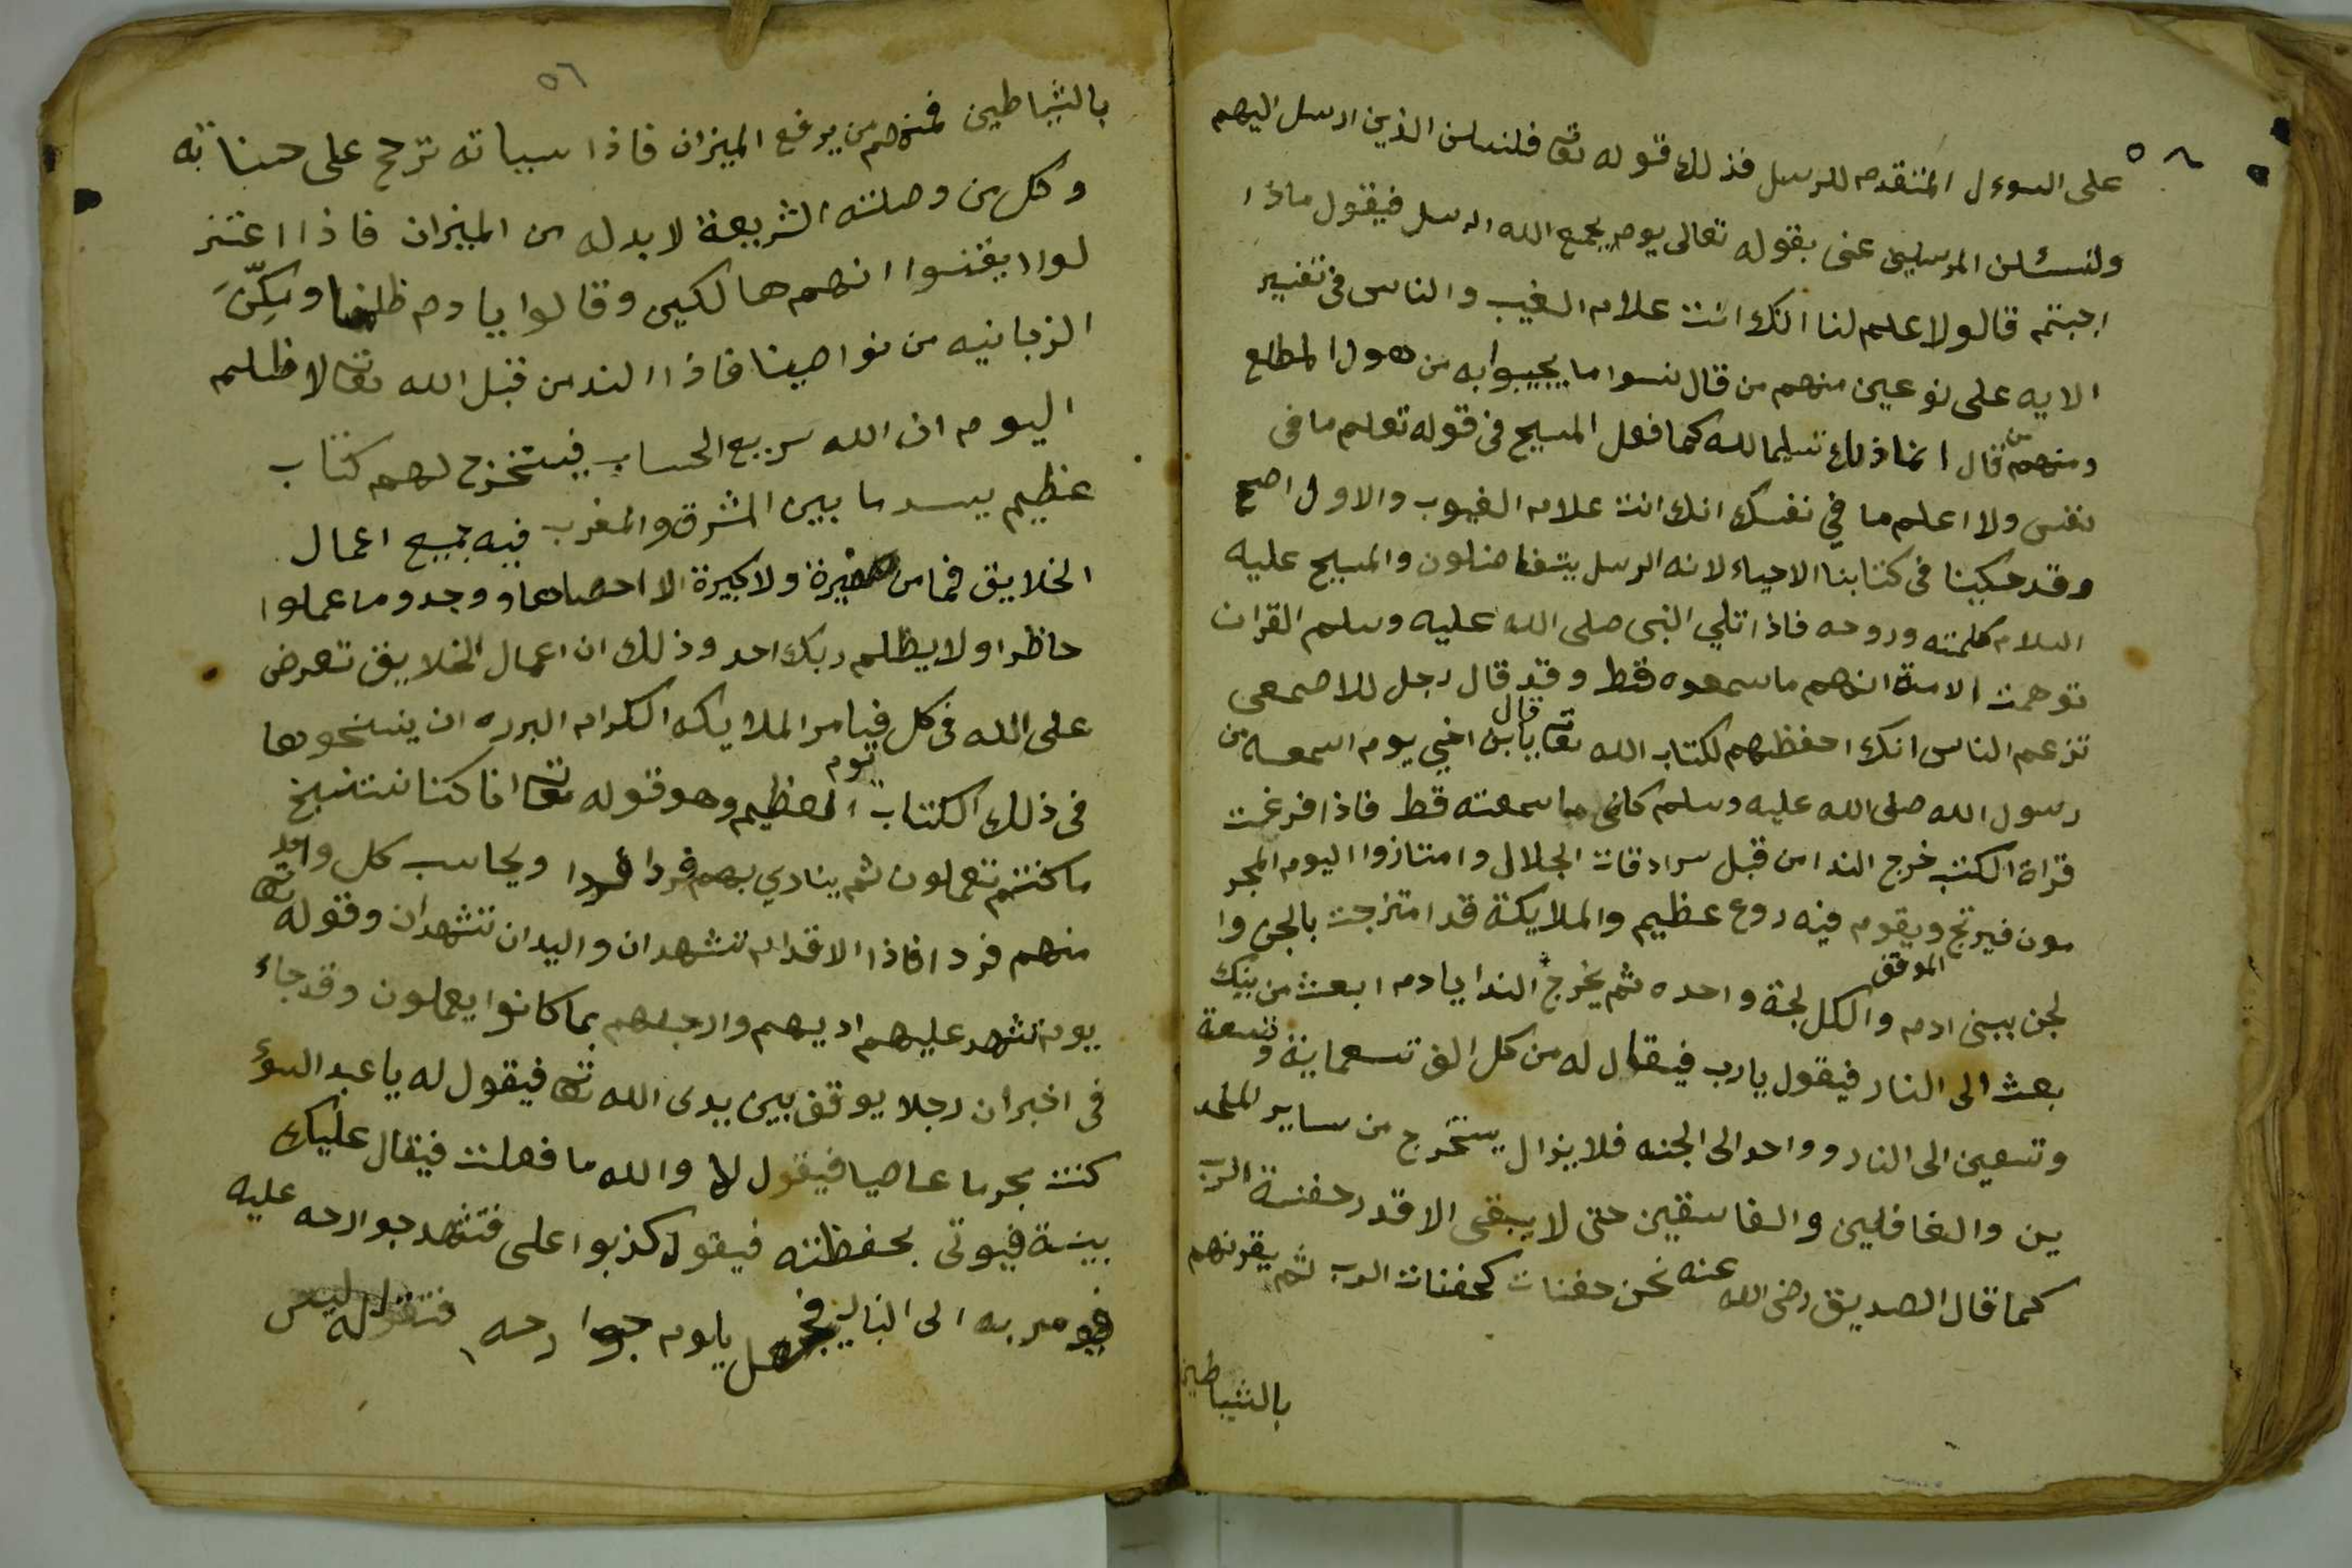 ٥٨
على السوءل المتقدم للرسل فذلك قوله تعا فلنسلن الذين ارسل اليهم
ولنسئلن المرسلين عنى بقوله تعالى يوم يجمع الله الرسل فيقول ماذا
اجبتم قالو لا علم لنا انك انت علام الغيب والناس فى تفسير
الايه على نوعين منهم من قال نسوا ما يجيبوا به من هول المطلع
ومنهم من قال انما ذلك تسليما لله كما فعل المسيح فى قوله تعلم ما فى
نفس ولا اعلم ما في نفسك انك انت علام الغيوب والاول اصح
وقد حكينا فى كتابنا الاحياء لانه الرسل يتفاضلون والمسيح عليه
السلام كلمته وروحه فاذا تلي النبى صلى الله عليه وسلم القران
توهمت الامة انهم ما سمعوه قط وقد قال رجل للاصمعى
تزعم الناس انك احفظهم لكتاب الله تعا قال يابن اخي يوم اسمعه من
رسول الله صلى الله عليه وسلم كانى ما سمعته قط فاذا فرغت
قراة الكتب خرج الندا من قبل سرادقات الجلال وامتازوا اليوم المجر
مون فيرتج الموقف ويقوم فيه روع عظيم والملايكة قد امتزجت بالجن وا
لجن ببنى ادم والكل لجة واحده ثم يخرج الندا يادم ابعث من بنيك
بعث الى النار فيقول يارب فيقال له من كل الف تسعماية وتسعة
وتسعين الى النار وواحد الى الجنه فلا يزال يستخرج من ساير الملحد
ين والغافلين والفاسقين حتى لا يبقى الا قدر حفنة الرب
كما قال الصديق رضى الله عنه نحن حفنات كحفنات الرب ثم يقرنهم
بالشياطين
٥٦
بالشياطين فمنهم من يرفع الميزان فاذا سيياته ترجح على حسناته
وكل من وصلته الشريعة لا بد له من الميزان فاذا اعتز
لوا وايقنوا انهم هالكين وقالوا يا دم ظلمنا ومكّن
الزبانيه من نواصينا فاذا الندا من قبل الله تعا لا ظلم
اليوم ان الله سريع الحساب فيستخرج لهم كتاب
عظيم يسد ما بين المشرق والمغرب فيه جميع اعمال
الخلايق فما من صغيرة ولا كبيرة الا احصاها ووجدو ما عملوا
حاظرا ولا يظلم ربك احد وذلك ان اعمال الخلايق تعرض
على الله فى كل يوم فيامر الملايكه الكرام البرره ان ينسخوها
فى ذلك الكتاب العظيم وهو قوله تعا انا كنا نستنسخ
ما كنتم تعملون ثم ينادي بهم فردا فردا ويحاسب كل واحد
منهم فردا فاذا الاقدام تشهدان واليدان تشهدان وقوله تعا
يوم تشهد عليهم اديهم وارجلهم بما كانوا يعملون وقد جاء
فى اخبر ان رجلا يوقف بين يدى الله تعا فيقول له يا عبد السوء
كنت مجرما عاصيا فيقول لا والله ما فعلت فيقال عليك
بينة فيوتى بحفظته فيقول كذبوا على فتشهد جوارحه عليه
فيومر به الى النار فيجعل يلوم جوارحه فتقول له ليس